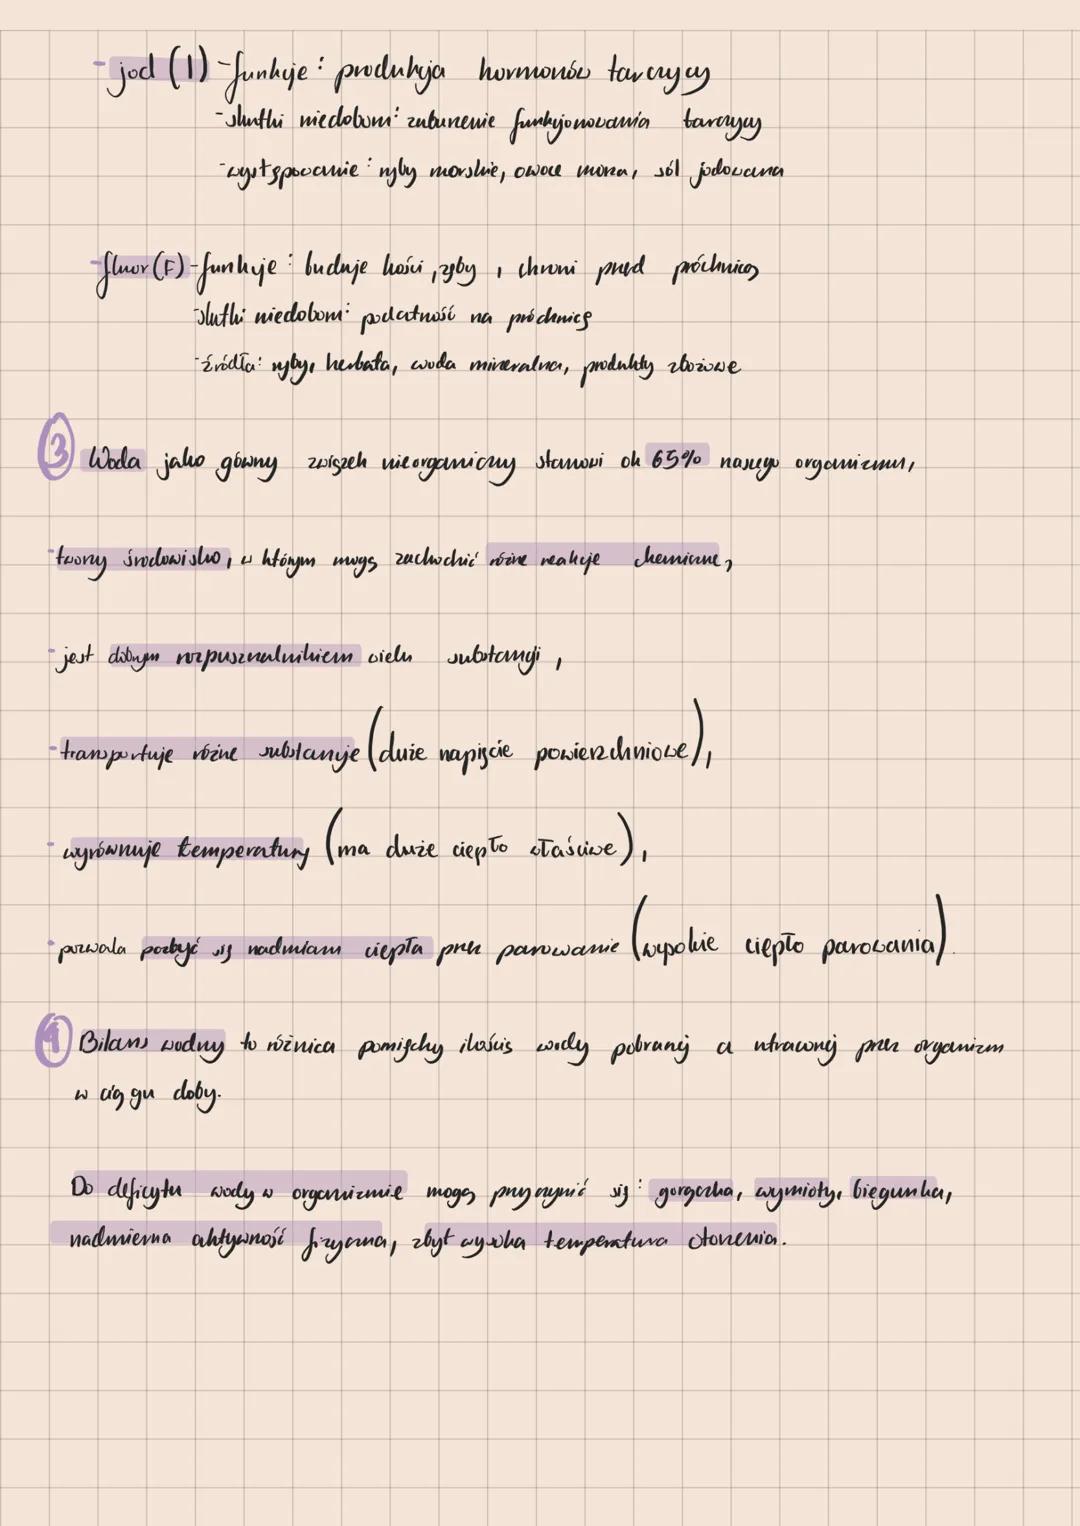 - jod (I) - funkcje: produkcja hormonów tarczycy
- skutki niedoboru: zaburzenie funkcjonowania tarczycy
- występowanie: ryby morskie, owoce morza, sól jodowana
- fluor (F) - funkcje: buduje kości, zęby, chroni przed próchnicą
- skutki niedoboru: podatność na próchnicę
- źródła: ryby, herbata, woda mineralna, produkty zbożowe
3 Woda jako gówny związek nieorganiczny stanowi ok 65% naszego organizmu,
- tworzy środowisko, w którym mogą zachodzić różne reakcje chemiczne,
- jest dobrym rozpuszczalnikiem wielu substancji,
- transportuje różne substancje (duże napięcie powierzchniowe),
- wyrównuje temperaturę (ma duże ciepło właściwe),
- pozwala pozbyć się nadmiaru ciepła przez parowanie (wysokie ciepło parowania).
4 Bilans wodny to różnica pomiędzy ilością wody pobranej a utraconej przez organizm
w ciągu doby.
Do deficytu wody w organizmie mogą przyczynić się: gorączka, wymioty, biegunka,
nadmierna aktywność fizyczna, zbyt wysoka temperatura otoczenia.